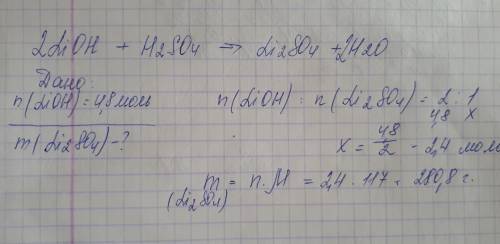 2LiOH + H2SO4 => Li2SO4 + 2H2O
Дано:
n(LiOH) = 4,8 моль
m(Li2SO4) - ?
n(LiOH) : n(Li2SO4) = 2 : 1
4,8 x
x = 4,8/2 - 2,4 моль
m = n·M = 2,4 · 117 = 280,8 г.
(Li2SO4)